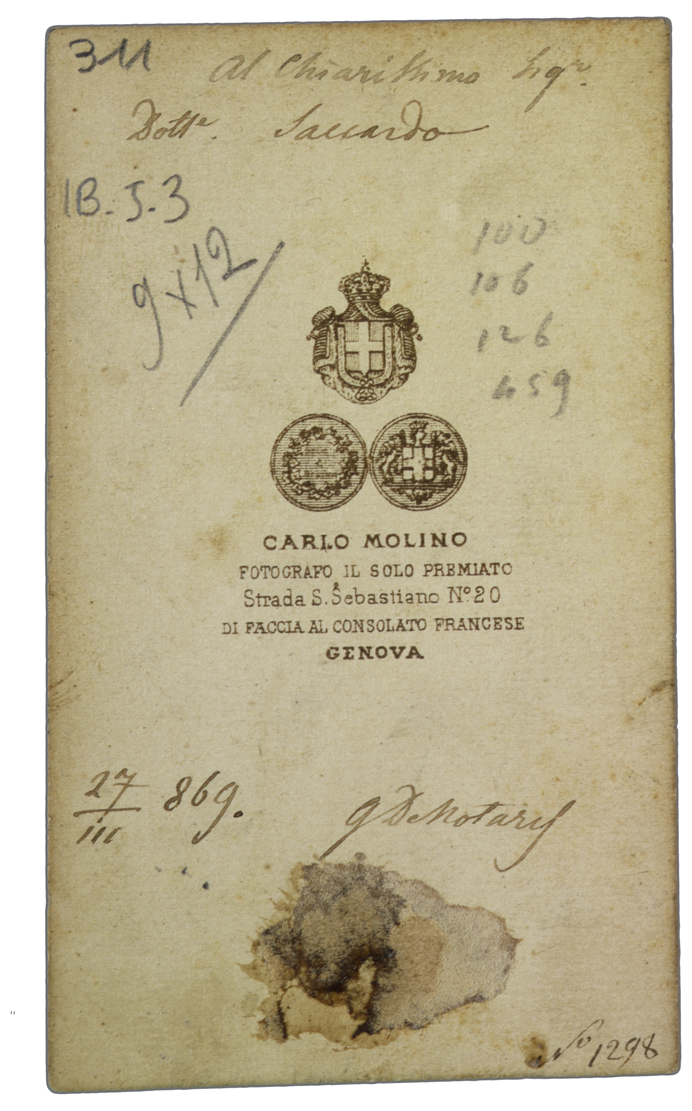 311
Al Chiarissimo Sigr.
Dottr. Saccardo
IB. 5. 3
9x12/
100
106
126
459
CARLO MOLINO
FOTOGRAFO IL SOLO PREMIATO
Strada S. Sebastiano No. 20
DI FACCIA AL CONSOLATO FRANCESE
GENOVA
27/III 869.
G DeNotaris
No 1298